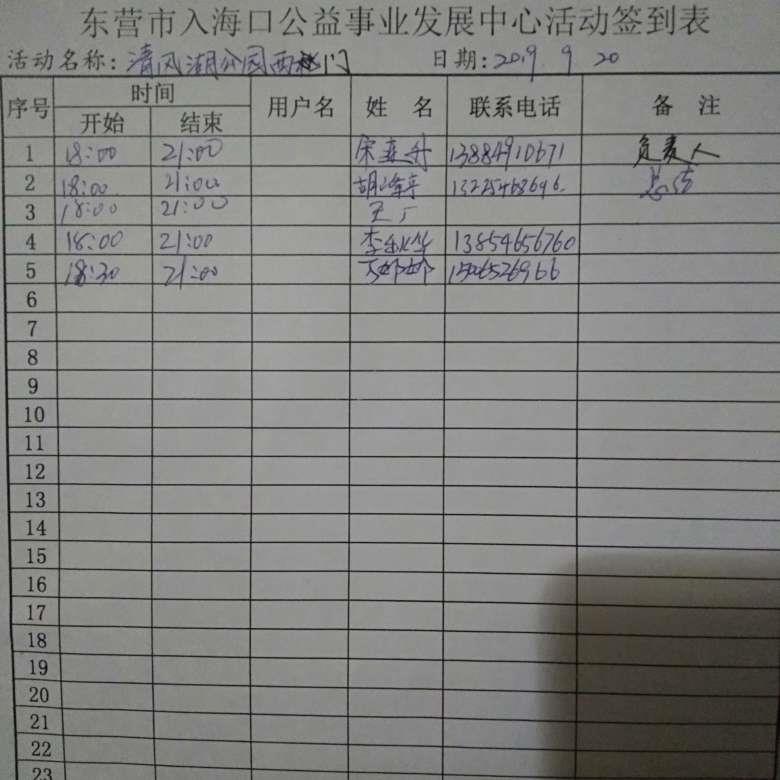 东营市入海口公益事业发展中心活动签到表
活动名称：清风湖公园西门 日期：2019 9 20
序号 时间 用户名 姓 名 联系电话 备 注
开始 结束
1 18:00 21:00 宋 13884910671 负责人
2 18:00 21:00 胡 13225468696
3 18:00 21:00 王
4 18:00 21:00 李 华 13854656760
5 18:30 21:00
6
7
8
9
10
11
12
13
14
15
16
17
18
19
20
21
22
23